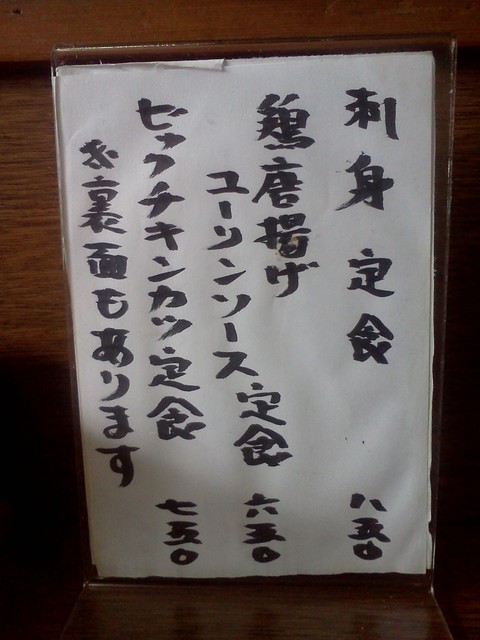 刺身定食 八五〇
鶏唐揚げ
ユーリンソース定食 六五〇
ビックチキンカツ定食 七五〇
お裏面もあります